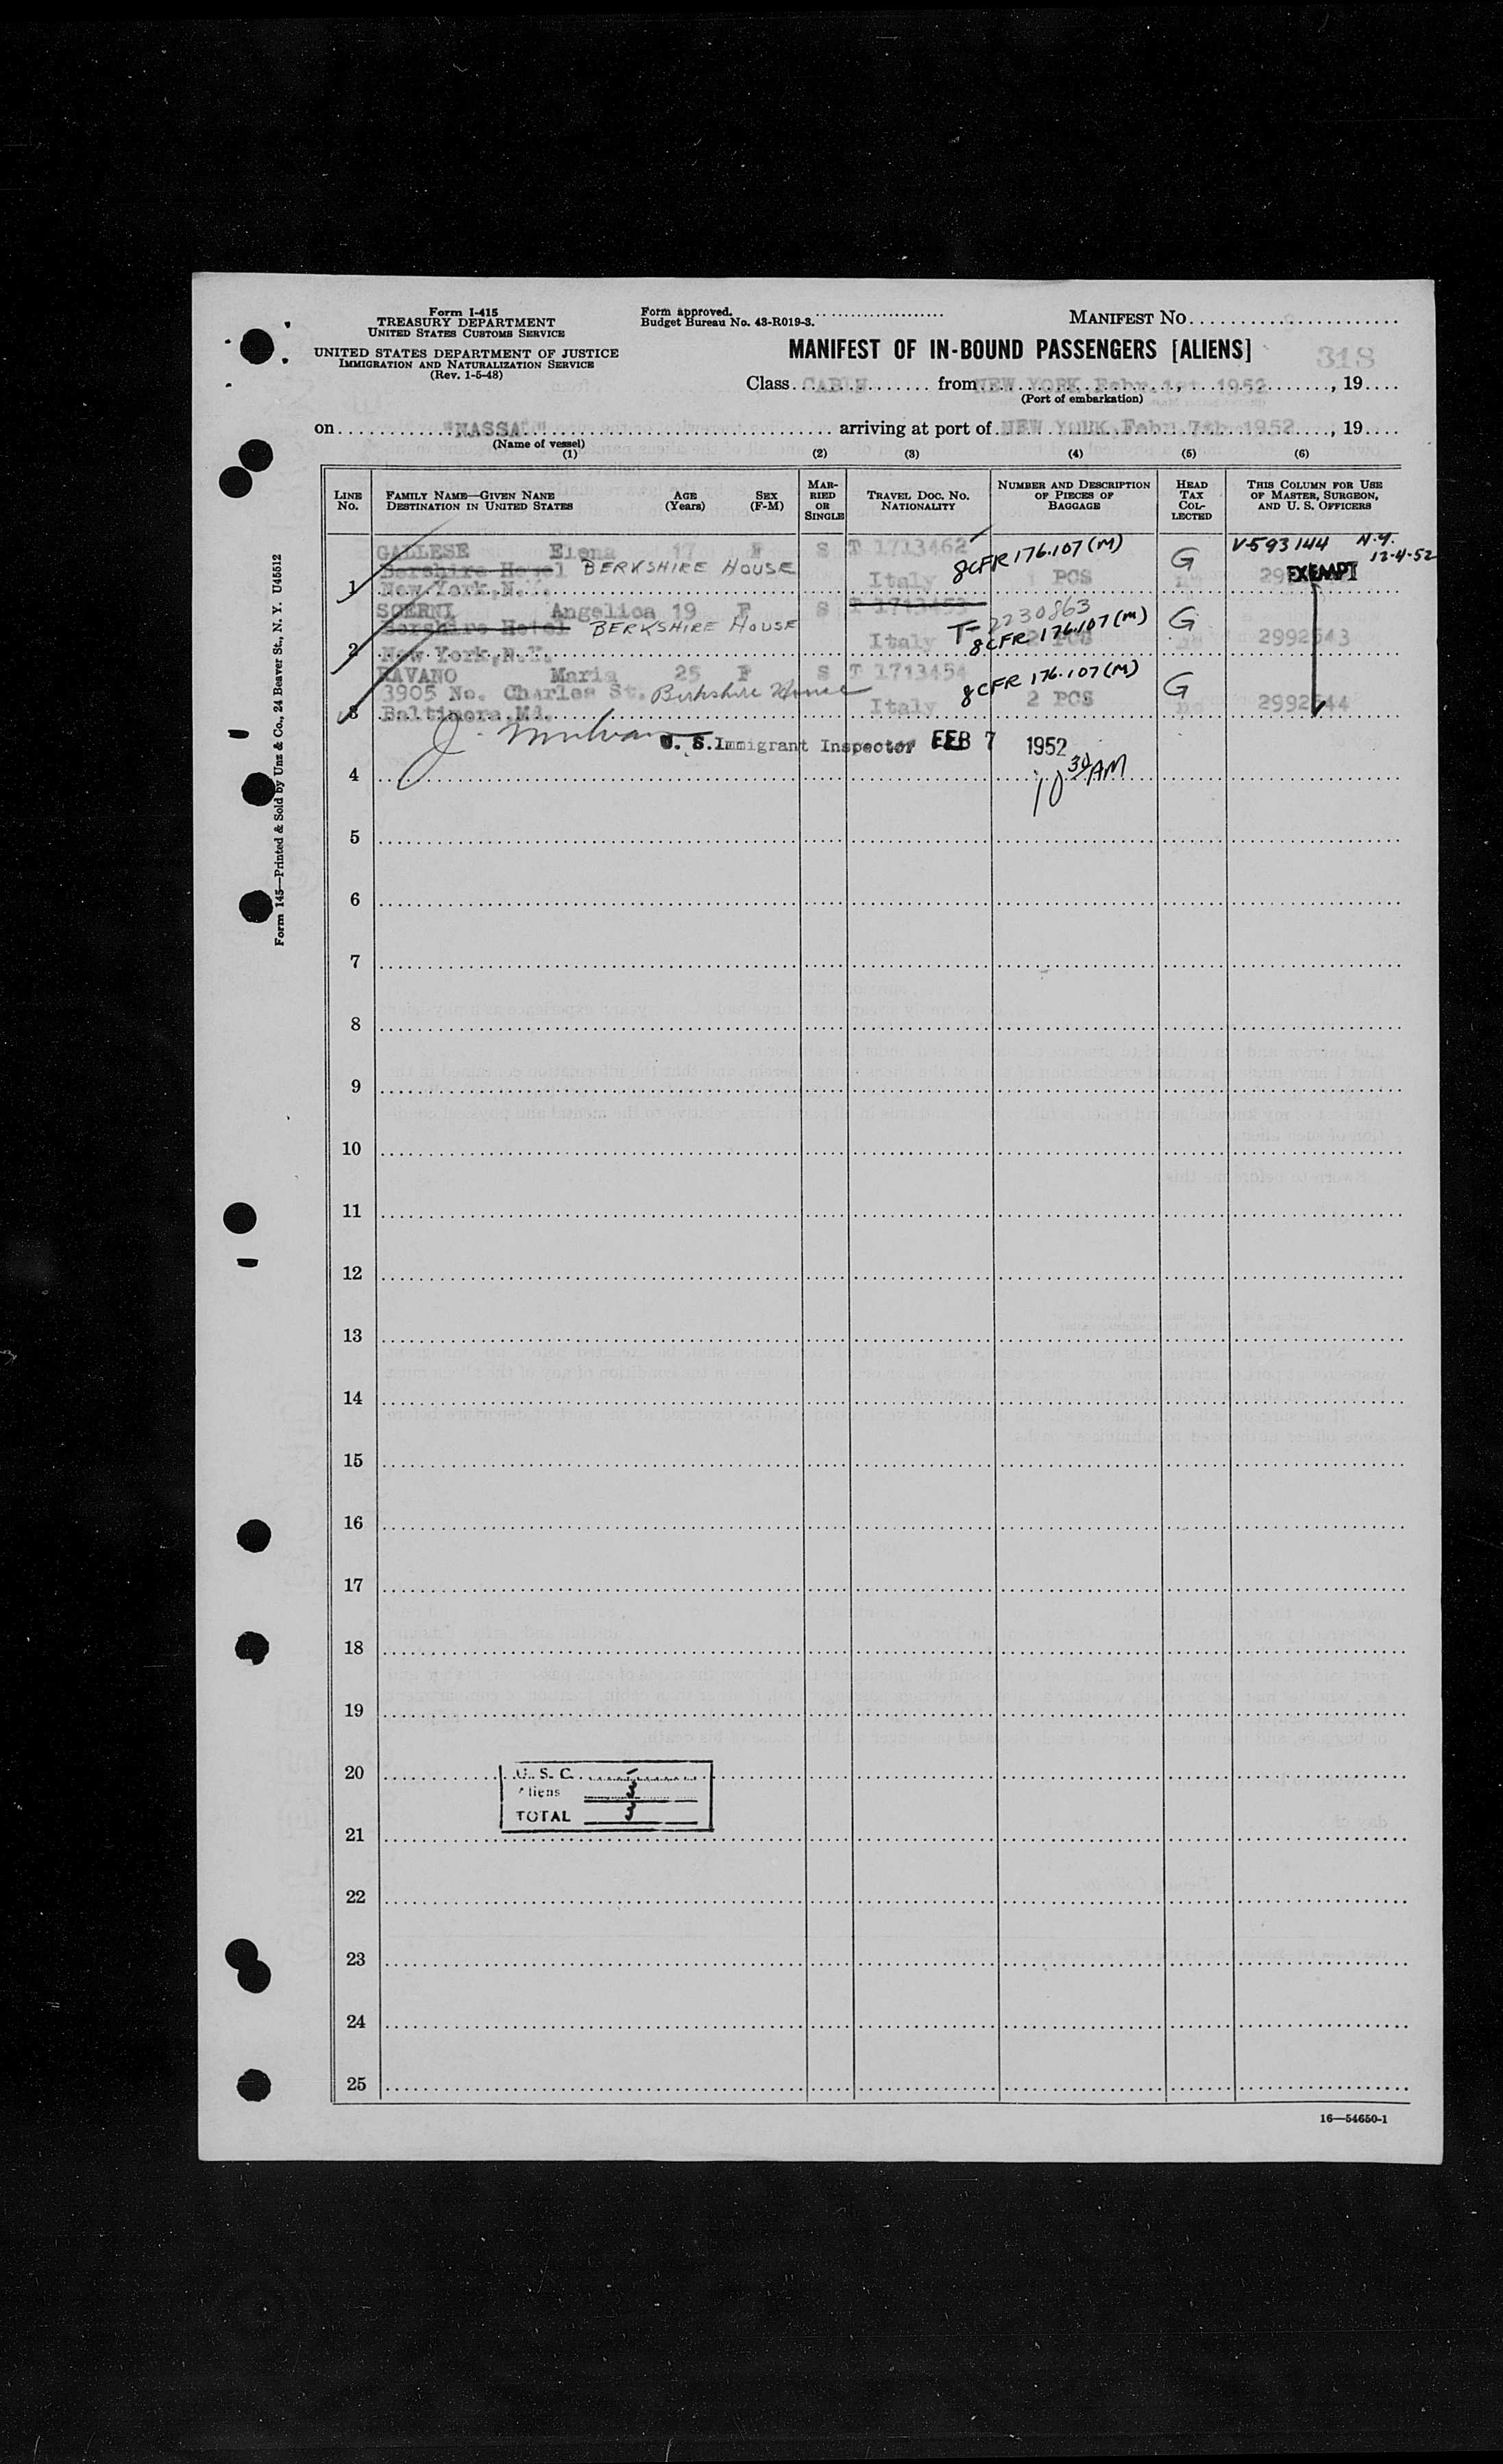 Form I-415
TREASURY DEPARTMENT
UNITED STATES CUSTOMS SERVICE
UNITED STATES DEPARTMENT OF JUSTICE
IMMIGRATION AND NATURALIZATION SERVICE
(Rev. 1-5-48)
Form approved.
Budget Bureau No. 43-R019-3.
MANIFEST NO
MANIFEST OF IN-BOUND PASSENGERS [ALIENS]
318
Class from NEW YORK Febr. 1st 1952, 19
(Port of embarkation)
on "NASSAU" arriving at port of NEW YOUK, Febr. 7th 1952, 19
(Name of vessel)
(1) (2) (3) (4) (5) (6)
LINE NO. FAMILY NAME—GIVEN NANE DESTINATION IN UNITED STATES AGE (Years) SEX (F-M) MARRIED OR SINGLE TRAVEL DOC. NO. NATIONALITY NUMBER AND DESCRIPTION OF PIECES OF BAGGAGE HEAD TAX COLLECTED THIS COLUMN FOR USE OF MASTER, SURGEON, AND U. S. OFFICERS
GALLESE Elena 17 F S T 1713462 8CFR 176.107(M) G V-593144 N.Y. 12-4-52
Bershire Hotel BERKSHIRE HOUSE Italy 1 PCS no EXEMPT
1 New York, N.Y.
SCERNI Angelica 19 F S T 1713453 T-2230863 G
Bershire Hotel BERKSHIRE HOUSE Italy 8CFR 176.107(M) 2 PCS no 2992543
2 New York, N.Y.
RAVANO Maria 25 F S T 1713454 8CFR 176.107(M) G
3905 No. Charles St. Berkshire House Italy 2 PCS no 2992544
3 Baltimora, Md.
U. S. Immigrant Inspector FEB 7 1952
10 30 AM
4
5
6
7
8
9
10
11
12
13
14
15
16
17
18
19
20
U. S. C. -
Aliens 3
TOTAL 3
21
22
23
24
25
16—54650-1
Form 145—Printed & Sold by Unz & Co., 24 Beaver St., N. Y. U45512